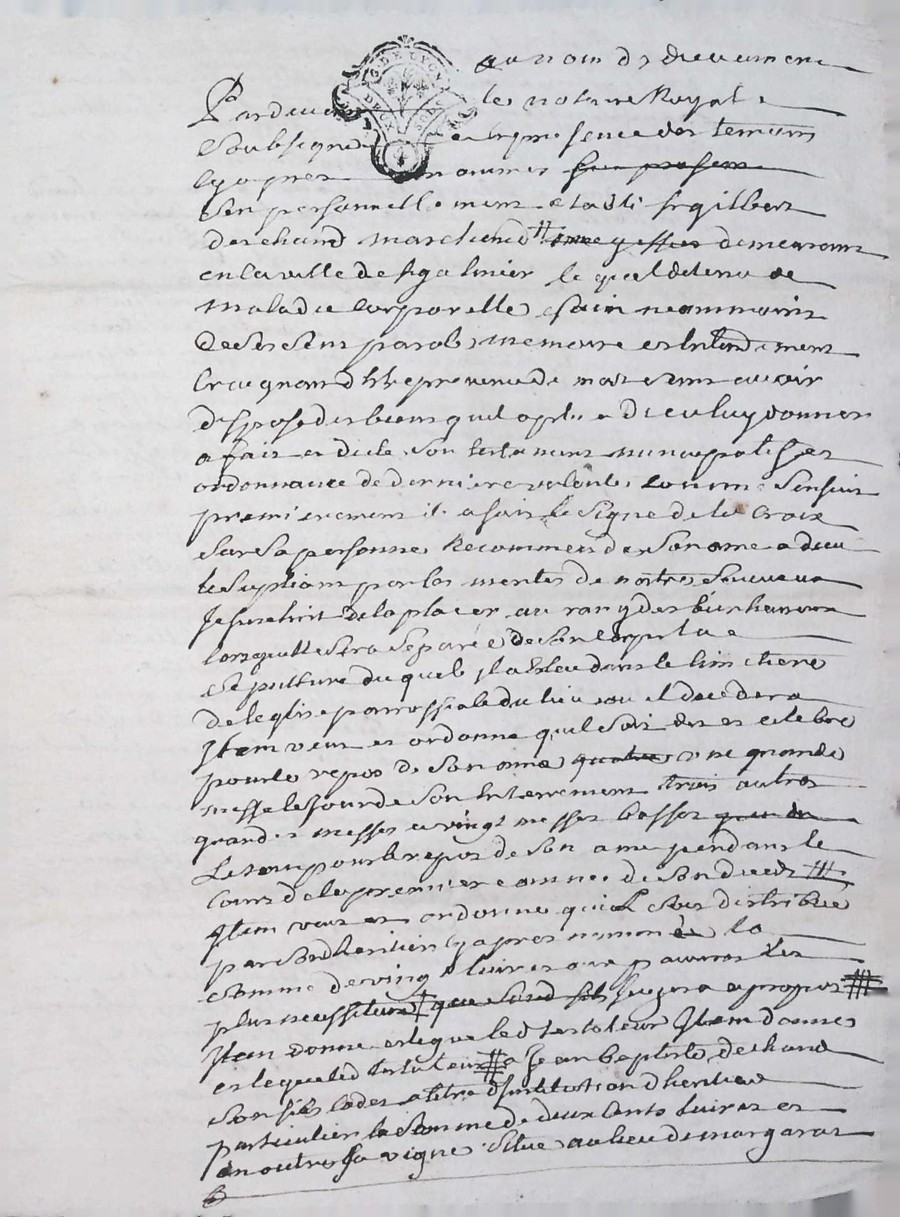 au nom de dieu amen
G. DE LYON
DEUX SOLS
Pardevant le notaire Royal
Soubsigné et en presence des temoins
cy apres nommes
Son personnellement etably sr gilbert
dechand marchand demeurant
en la ville de st galmier le quel detenu de
maladie corporelle sain neammoins
de ses sens parole memoire et entendement
Craignant dêtre prevenu de mort sans avoir
disposé des biens quil a plu a dieu luy donner
a fait et dicté son testament nuncupatif et
ordonnance de derniere volonté comme sensuit
premierement il a fait le Signe de la Croix
Sur Sa personne Recommendé Son ame a dieu
le Supliant par les merites de nostre Sauveur
Jesus christ de la placer au rang des bienheureux
lorsquelle sera Separée de Son corps la
Sepulture duquel il a Eleu dans le Cimetiere
de leglise parroissiale du lieu ou il decedera
Item veut et ordonne quil soit dit et celebré
pour le repos de Son ame quatre une grande
messe le jour de Son Enterrement trois autres
grandes messes et vingt messes basses
Le tout pour le repos de Son ame pendant le
Cours de la premiere année de Son deces
Item veut et ordonne quil Soit distribué
par Son heritier cy apres nommé la
Somme de vingt livres aux pauvres les
plus necessiteux que Sond jugera a propos
Item donne et legue led testateur Item donne
et legue led testateur a Jean baptiste dechand
Son fils cadet a titre dinstitution dheritier
particulier la Somme de deux cents livres et
en outre Sa vigne Situe au lieu de margarat